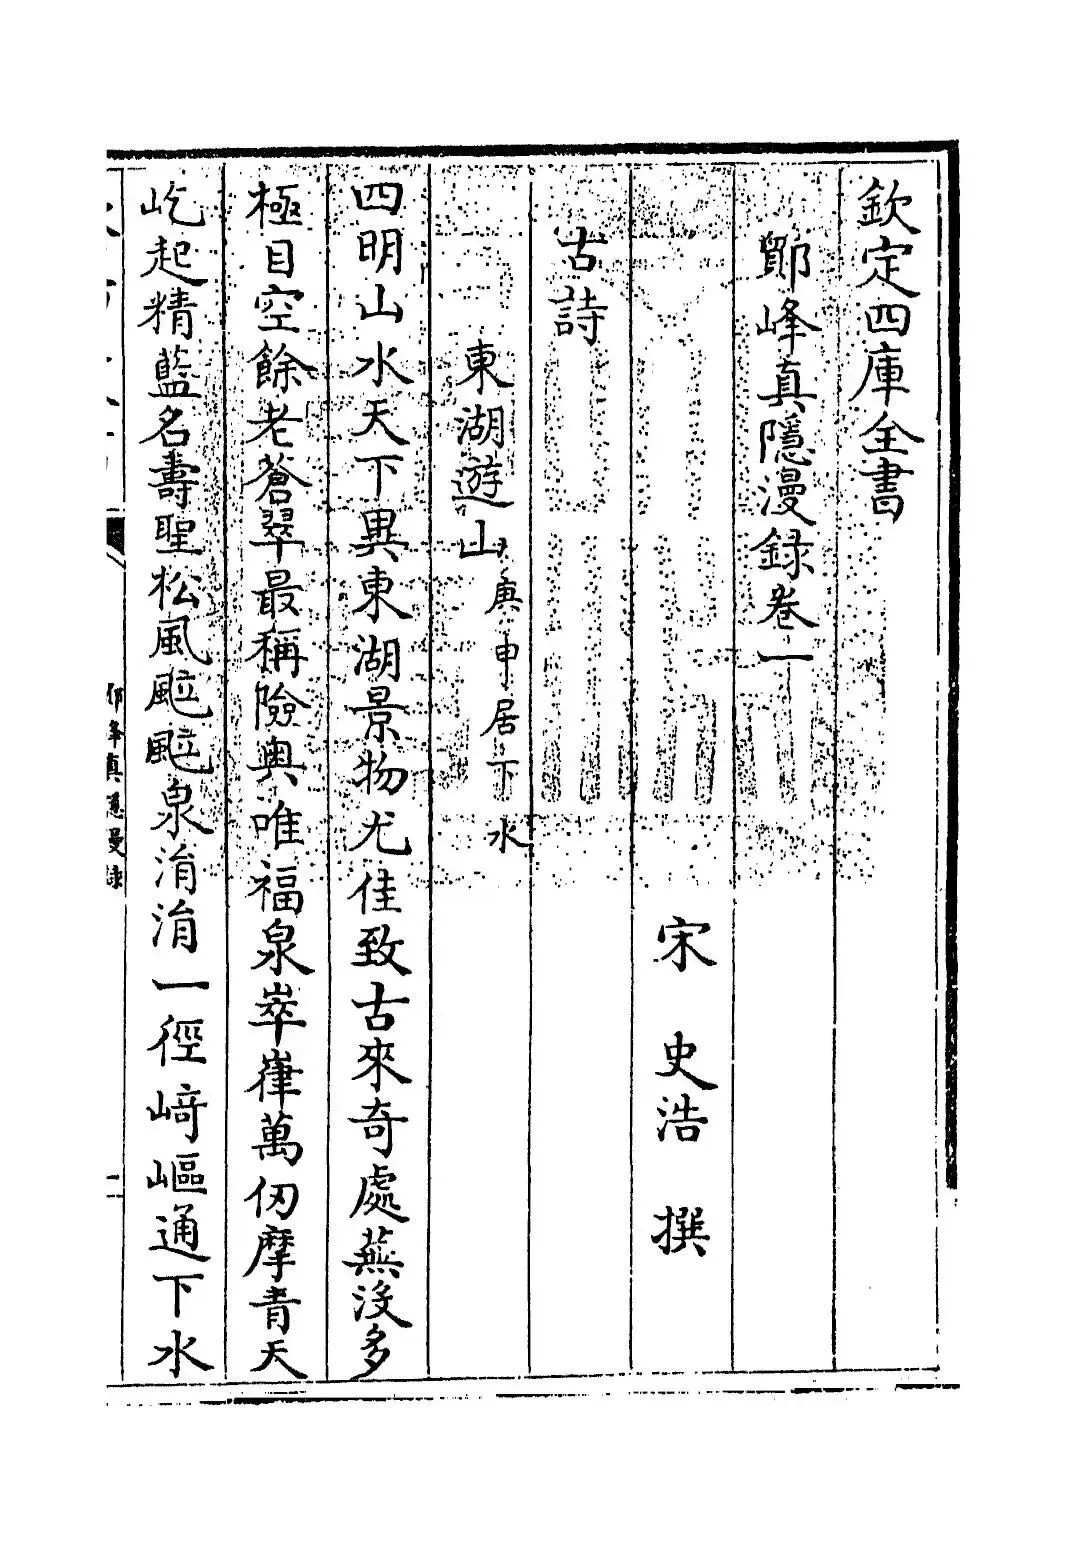 欽定四庫全書
鄮峰真隱漫録卷一
宋 史浩 撰
古詩
東湖遊山 庚申居下水
四明山水天下異東湖景物尤佳致古來奇處蕪没多
極目空餘老蒼翠最稱險奥唯福泉崒嵂萬仞摩青天
屹起精藍名壽聖松風颭颭泉涓涓一徑﨑嶇通下水
鄮峰真隱漫録